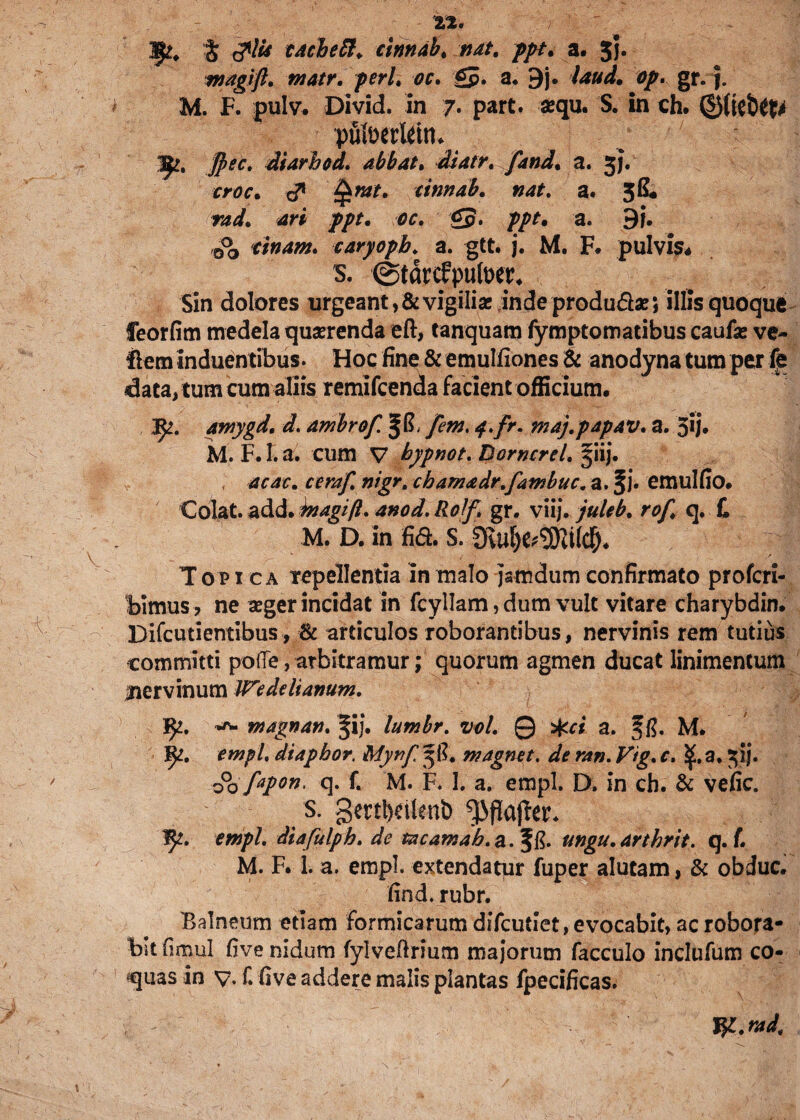 22.
℞. ☿ ♂lis cachect. cinnab. nat. ppt. a. ʒj.
magiſt. matr. perl. oc. ♋. a. ℈j. laud. op. gr. j.
M. F. pulv. Divid. in 7. part. æqu. S. in ch. Glieder⸗
pülverlein.
℞. ſpec. diarhod. abbat. diatr. ſand. a. ʒj.
croc. ♂ ♃rat. cinnab. nat. a. ʒß.
rad. ari ppt. oc. ♋. ppt. a. ℈j.
cinam. caryoph. a. gtt. j. M. F. pulvis.
S. Stärckpulver.
Sin dolores urgeant, & vigiliæ inde productæ; illis quoque
ſeorſim medela quærenda eſt, tanquam ſymptomatibus cauſæ ve-
ſtem induentibus. Hoc fine & emulſiones & anodyna tum per ſe
data, tum cum aliis remiſcenda facient officium.
℞. amygd. d. ambroſ. ℥ß. ſem. 4. fr. maj. papav. a. ʒij.
M. F. l. a. cum ▽ hypnot. Dorncrel. ℥iij.
acac. ceraſ. nigr. chamædr. ſambuc. a. ℥j. emulſio.
Colat. add. magiſt. anod. Rolf. gr. viij. juleb. roſ. q. ſ.
M. D. in fict. S. Ruhe⸗Milch.
TOPICA repellentia in malo jamdum confirmato proſcri-
bimus, ne æger incidat in ſcyllam, dum vult vitare charybdin.
Diſcutientibus, & articulos roborantibus, nervinis rem tutius
committi poſſe, arbitramur; quorum agmen ducat linimentum
nervinum Wedelianum.
℞. magnan. ℥ij. lumbr. vol. ⊖ ✶ci a. ℥ß. M.
℞. empl. diaphor. Mynſ. ℥ß. magnet. de ran. Vig. c. ☿. a. ʒij.
ſapon. q. ſ. M. F. l. a. empl. D. in ch. & veſic.
S. Zertheilend Pflaſter.
℞. empl. diaſulph. de tacamah. a. ℥ß. ungu. arthrit. q. ſ.
M. F. l. a. empl. extendatur ſuper alutam, & obduc.
ſind. rubr.
Balneum etiam formicarum diſcutiet, evocabit, ac robora-
bit ſimul ſive nidum ſylveſtrium majorum ſacculo incluſum co-
quas in ▽. ſ. ſive addere malis plantas ſpecificas.
℞. rad.